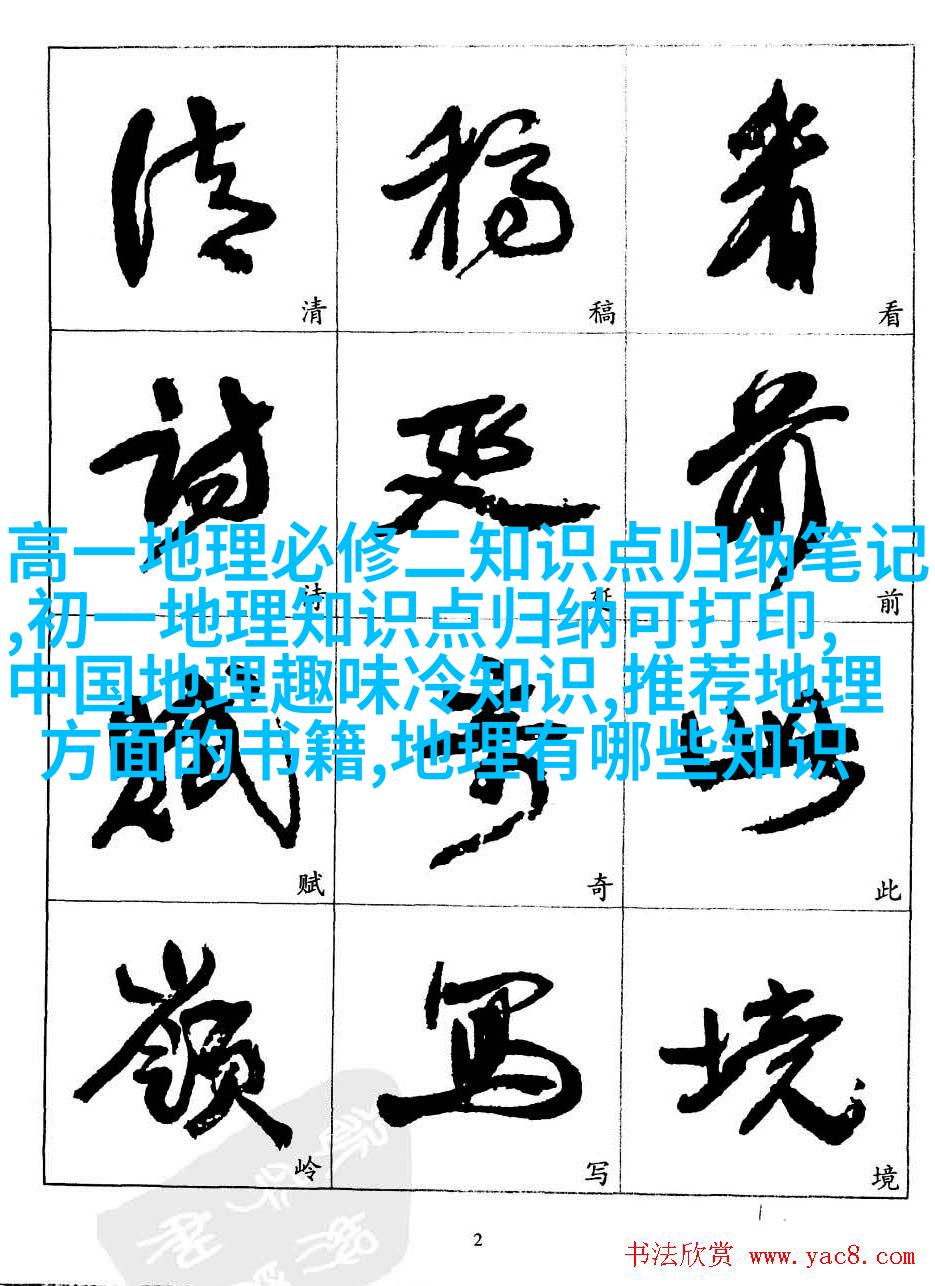 清 稿 看
清 稿 看
詩 延 前
诗 延 前
高一地理必修二知识点归纳笔记
,初一地理知识点归纳可打印,
中国地理趣味冷知识,推荐地理
方面的书籍,地理有哪些知识
賦 奇 此
赋 奇 此
嶺 寫 境
岭 写 境
2
书法欣赏 www.yac8.com